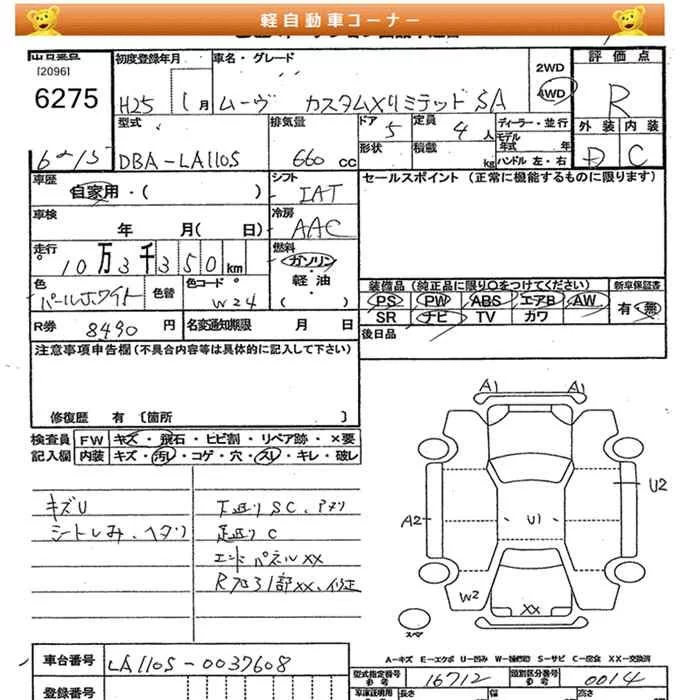 軽自動車コーナー
[2096]
6275
6-15
初度登録年月
H25 1月
車名・グレード
ムーヴ カスタムXリミテッド SA
2WD
4WD
評価点
R
外装 内装
D C
型式
DBA-LA110S
排気量
660 cc
ドア 5
定員 4人
形状
積載 kg
ディーラー・並行
モデル年式 年
ハンドル 左・右
車歴
自家用・( )
シフト
IAT
セールスポイント (正常に機能するものに限ります)
車検
年 月( 日)
冷房
AAC
走行
10万3千350km
燃料
ガソリン
・
軽油
・
( )
色
パールホワイト
色替
色コード
W24
装備品 (純正品に限り○をつけてください)
PS PW ABS エアB AW
SR ナビ TV カワ
新車保証書
有・無
R券 8490 円
名変通知期限 月 日
後日品
注意事項申告欄(不具合内容等は具体的に記入して下さい)
修復歴 有 [箇所 ]
検査員記入欄
FW キズ・飛石・ヒビ割・リペア跡・×要
内装 キズ・汚レ・コゲ・穴・スレ・キレ・破レ
キズU
シートしみ、ヘタリ
下廻り SC、アタリ
足廻り C
エンドパネルXX
Rフロア部XX、修正
A1 A1
U2
A2
U1
W2
XX
スペア
A-キズ E-エクボ U-凹み W-補修跡 S-サビ C-腐食 XX-交換済
車台番号 LA110S-0037608
型式指定番号 16712
類別区分番号 0014
登録番号
長さ 幅 高さ